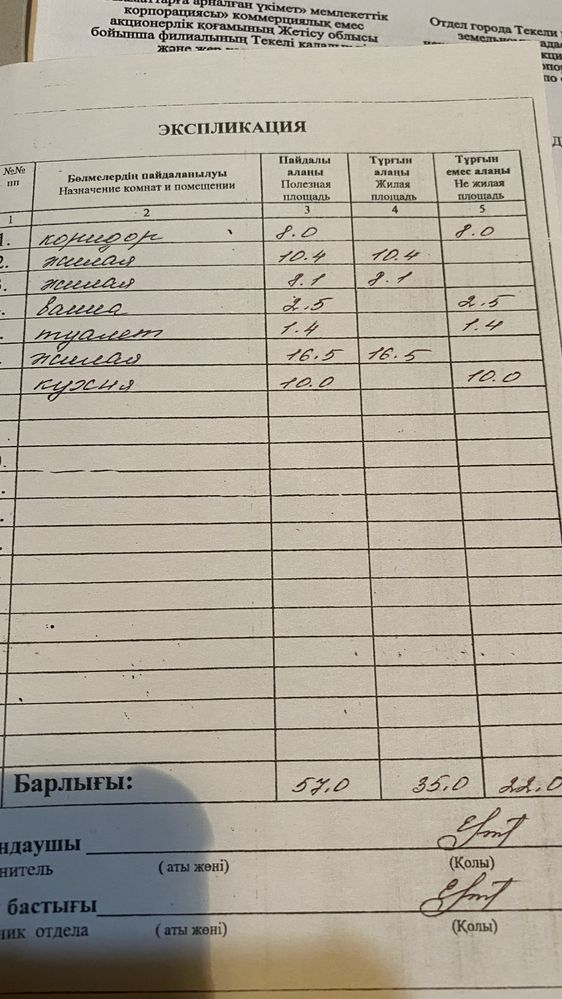 арналған үкімет» мемлекеттік
корпорациясы» коммерциялық емес
акционерлік қоғамының Жетісу облысы
бойынша филиалының Текелі
және жер
Отдел города Текели
ЭКСПЛИКАЦИЯ
№№
пп
Бөлмелердің пайдаланылуы
Назначение комнат и помещении
Пайдалы
алаңы
Полезная
площадь
Тұрғын
алаңы
Жилая
площадь
Тұрғын
емес алаңы
Не жилая
площадь
1 2 3 4 5
1. коридор 8.0 8.0
2. жилая 10.4 10.4
. жилая 8.1 8.1
. ванна 2.5 2.5
. туалет 1.4 1.4
. жилая 16.5 16.5
кухня 10.0 10.0
Барлығы: 57.0 35.0 22.0
ндаушы
нитель (аты жөні) (Қолы)
бастығы
ник отдела (аты жөні) (Қолы)